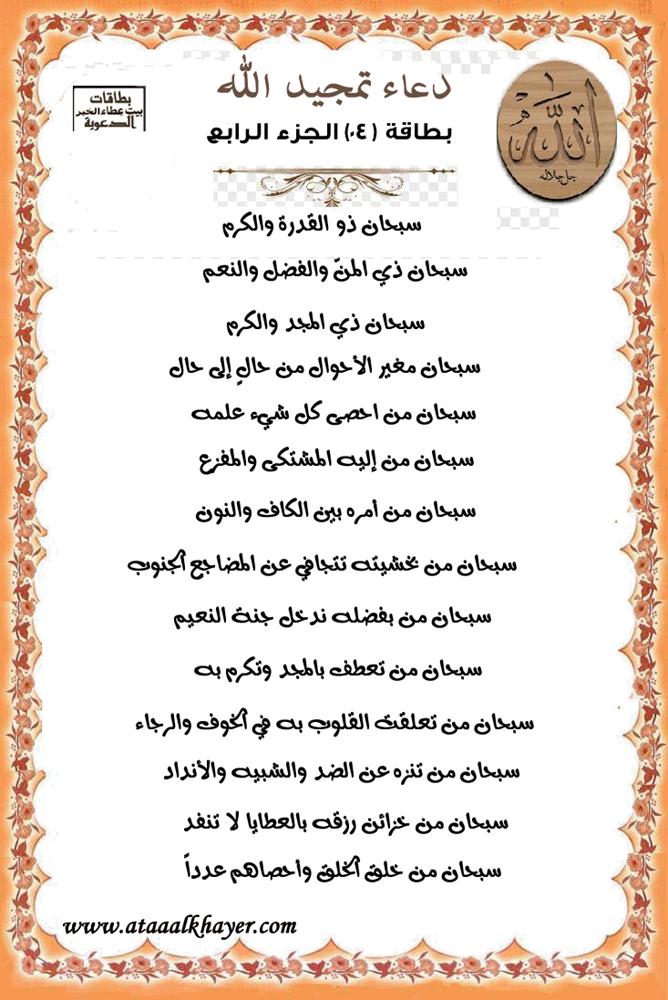 دعاء تمجيد الله
بطاقة (٠٤) الجزء الرابع
بطاقات
بيت عطاء الخير
الدعوية
الله
جل جلاله
سبحان ذو القدرة والكرم
سبحان ذي المنّ والفضل والنعم
سبحان ذي المجد والكرم
سبحان مغير الأحوال من حالٍ إلى حال
سبحان من احصى كل شيء علمه
سبحان من إليه المشتكى والمفزع
سبحان من أمره بين الكاف والنون
سبحان من بخشيته تتجافي عن المضاجع الجنوب
سبحان من بفضله ندخل جنة النعيم
سبحان من تعطف بالمجد وتكرم به
سبحان من تعلقت القلوب به في الخوف والرجاء
سبحان من تنزه عن الضد والشبيه والأنداد
سبحان من خزائن رزقه بالعطايا لا تنفد
سبحان من خلق الخلق وأحصاهم عدداً
www.ataaalkhayer.com